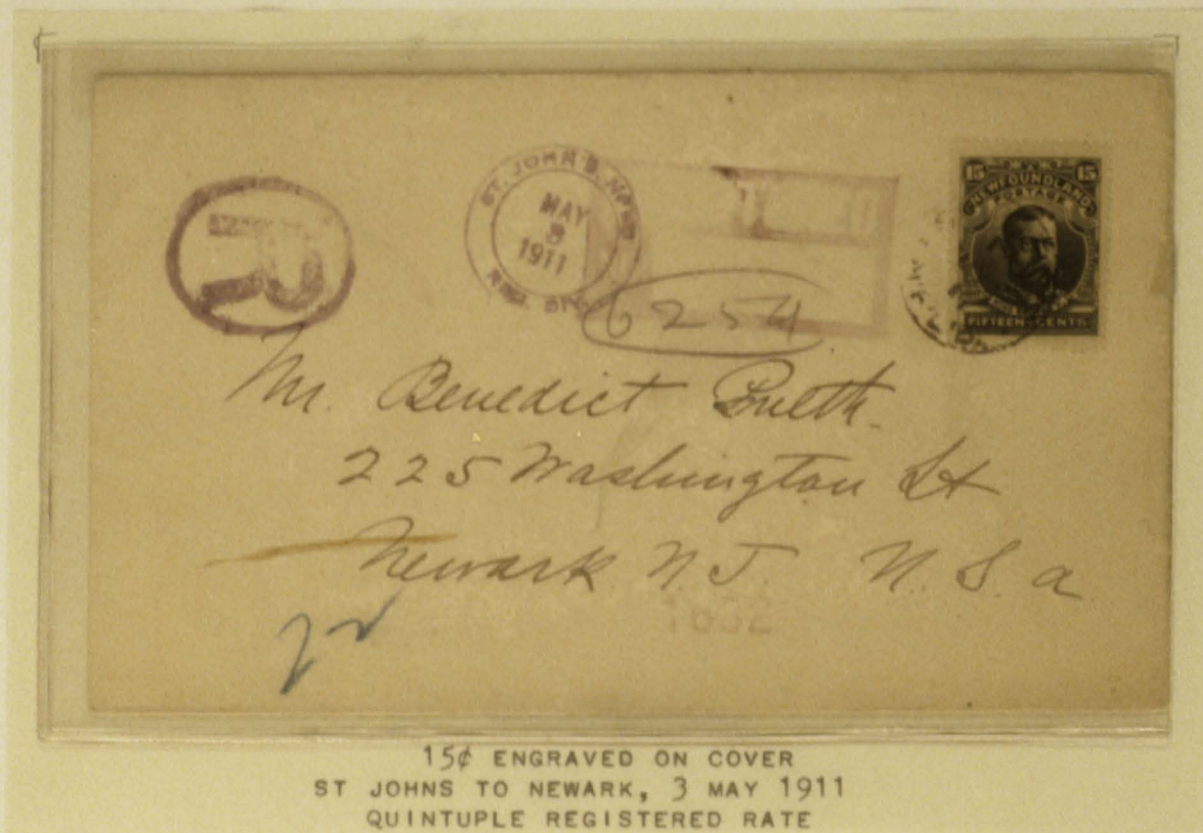 R
ST. JOHN'S, NF'D
MAY
3
1911
REG.
6254
15 15
NEWFOUNDLAND
POSTAGE
FIFTEEN CENTS
Mr. Benedict
225 Washington St
Newark N.J. U.S.a
1652
15¢ ENGRAVED ON COVER
ST JOHNS TO NEWARK, 3 MAY 1911
QUINTUPLE REGISTERED RATE